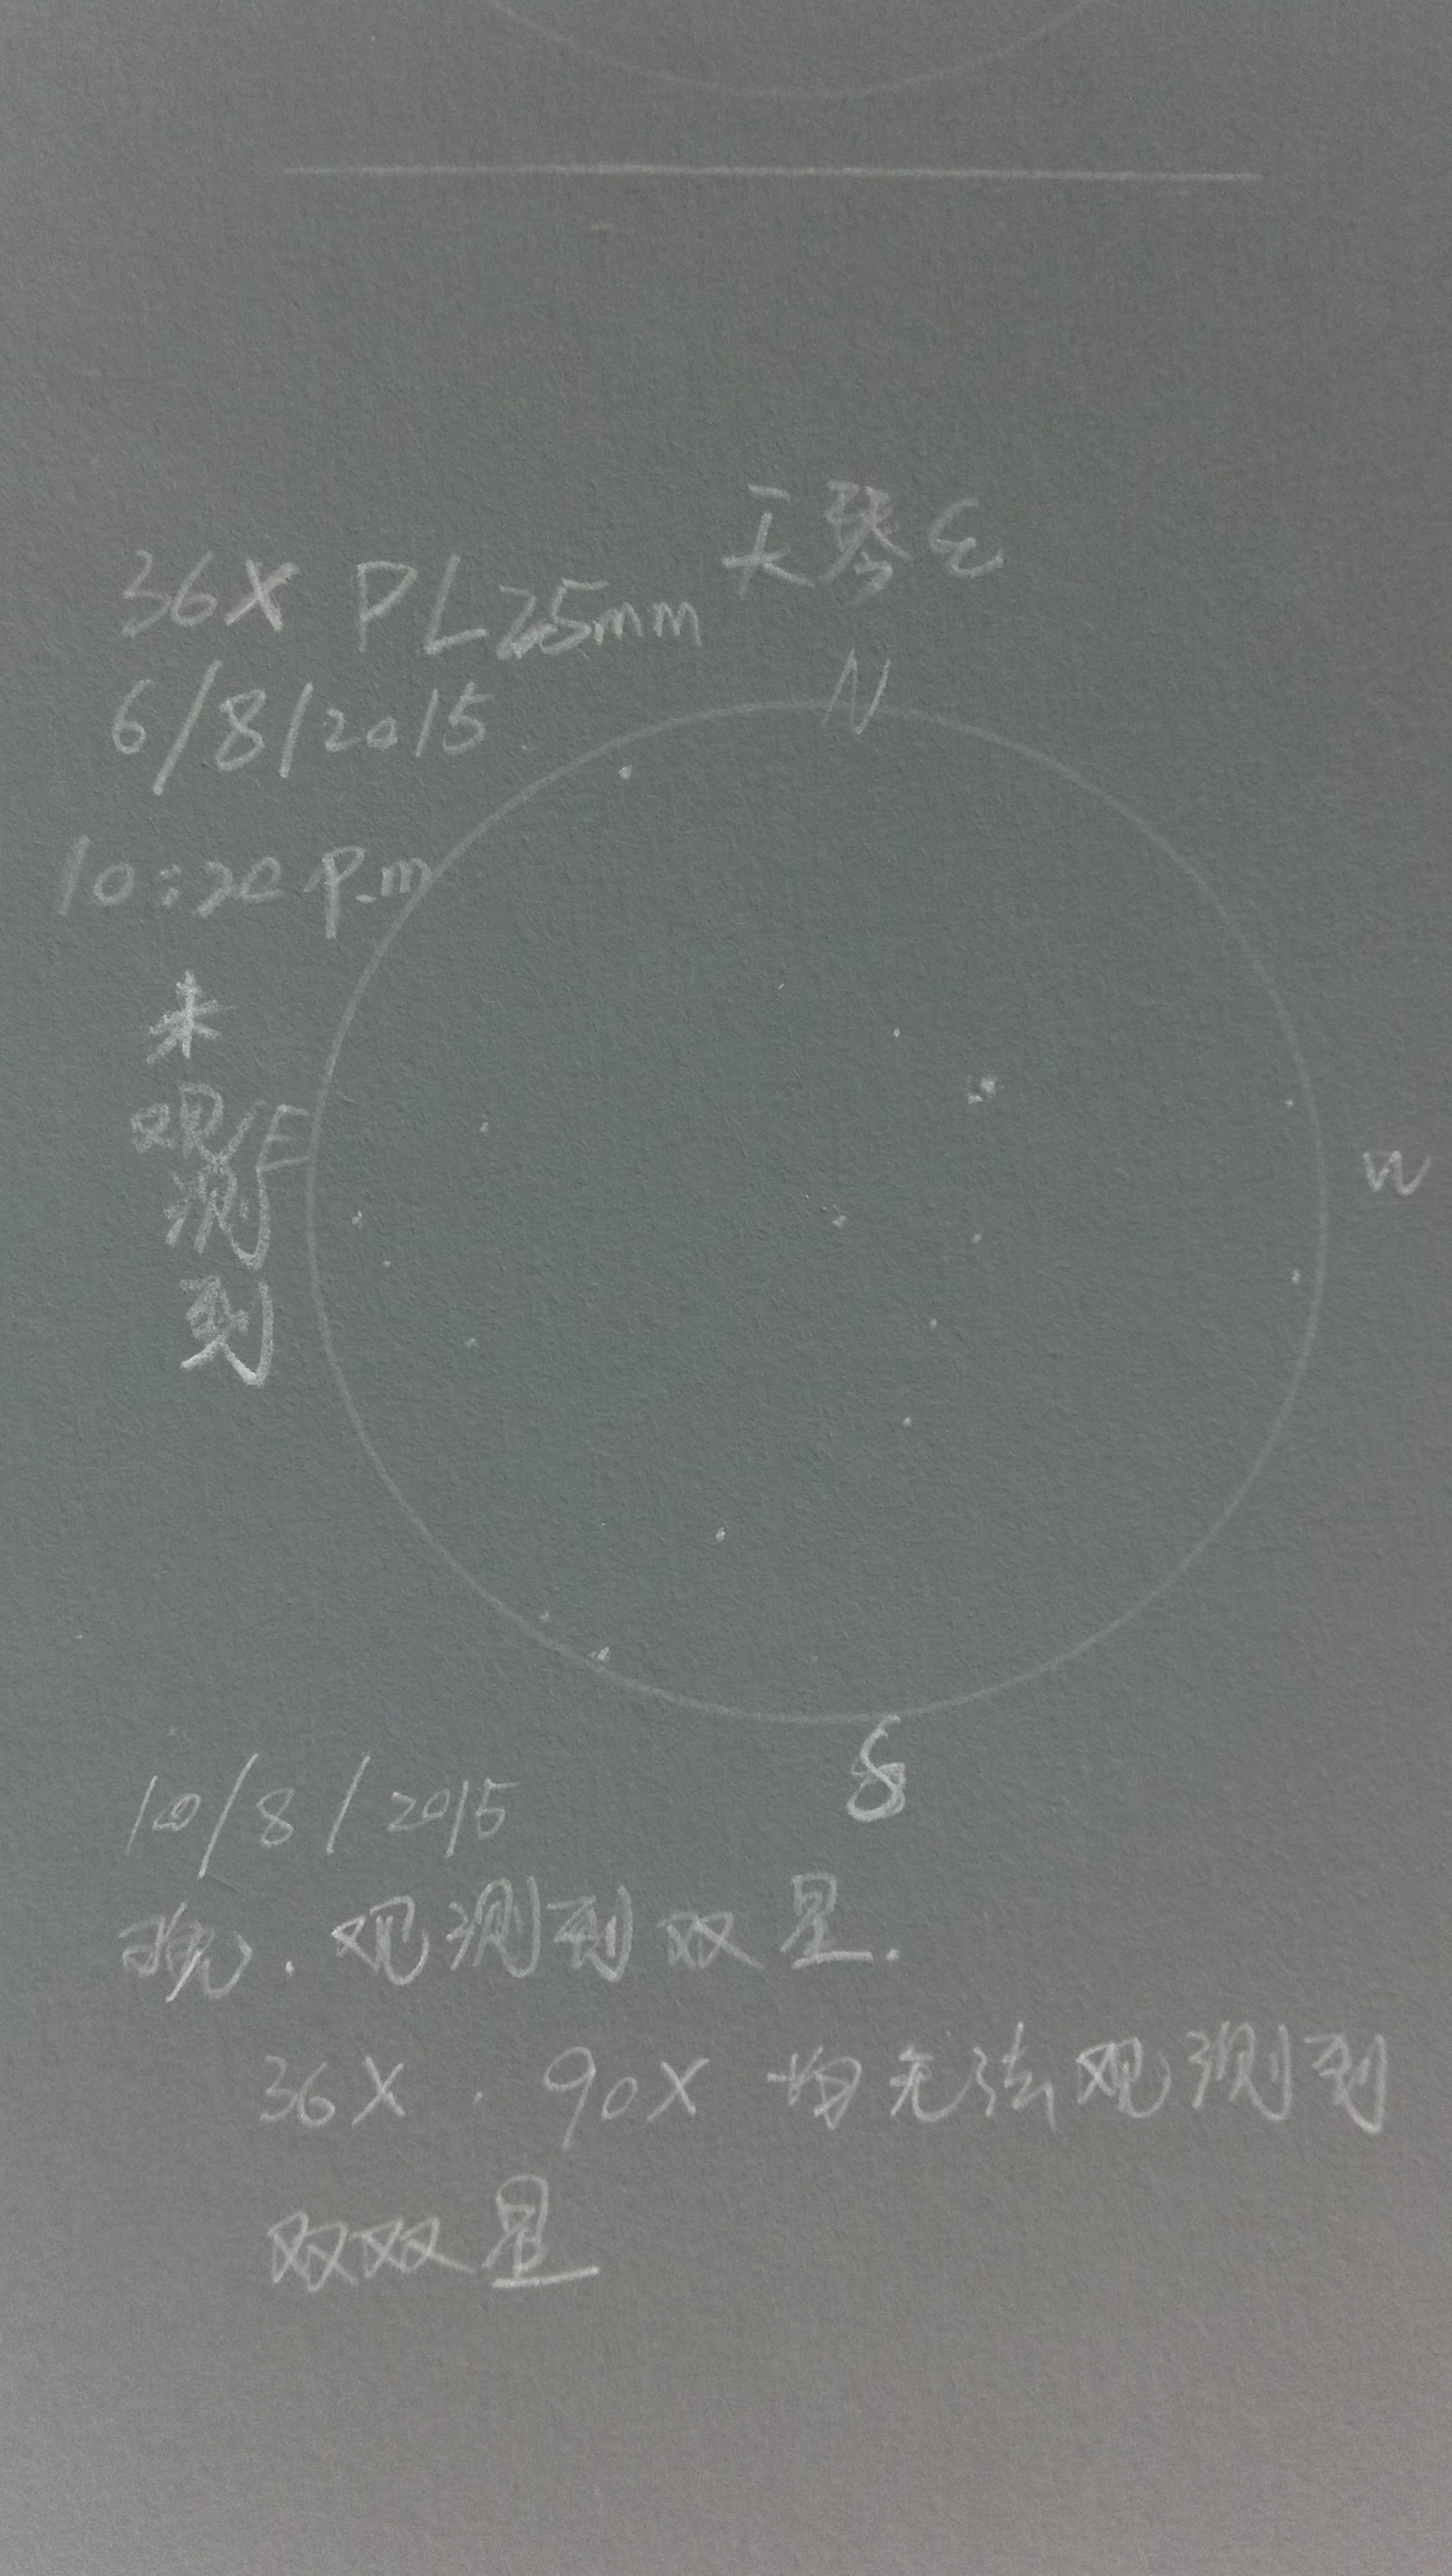 天琴ε
36X PL25mm
N
6/8/2015
10:20 p.m
未
观
测
到
E
W
S
10/8/2015
晚.观测到双星.
36X . 90X 均无法观测到
双双星